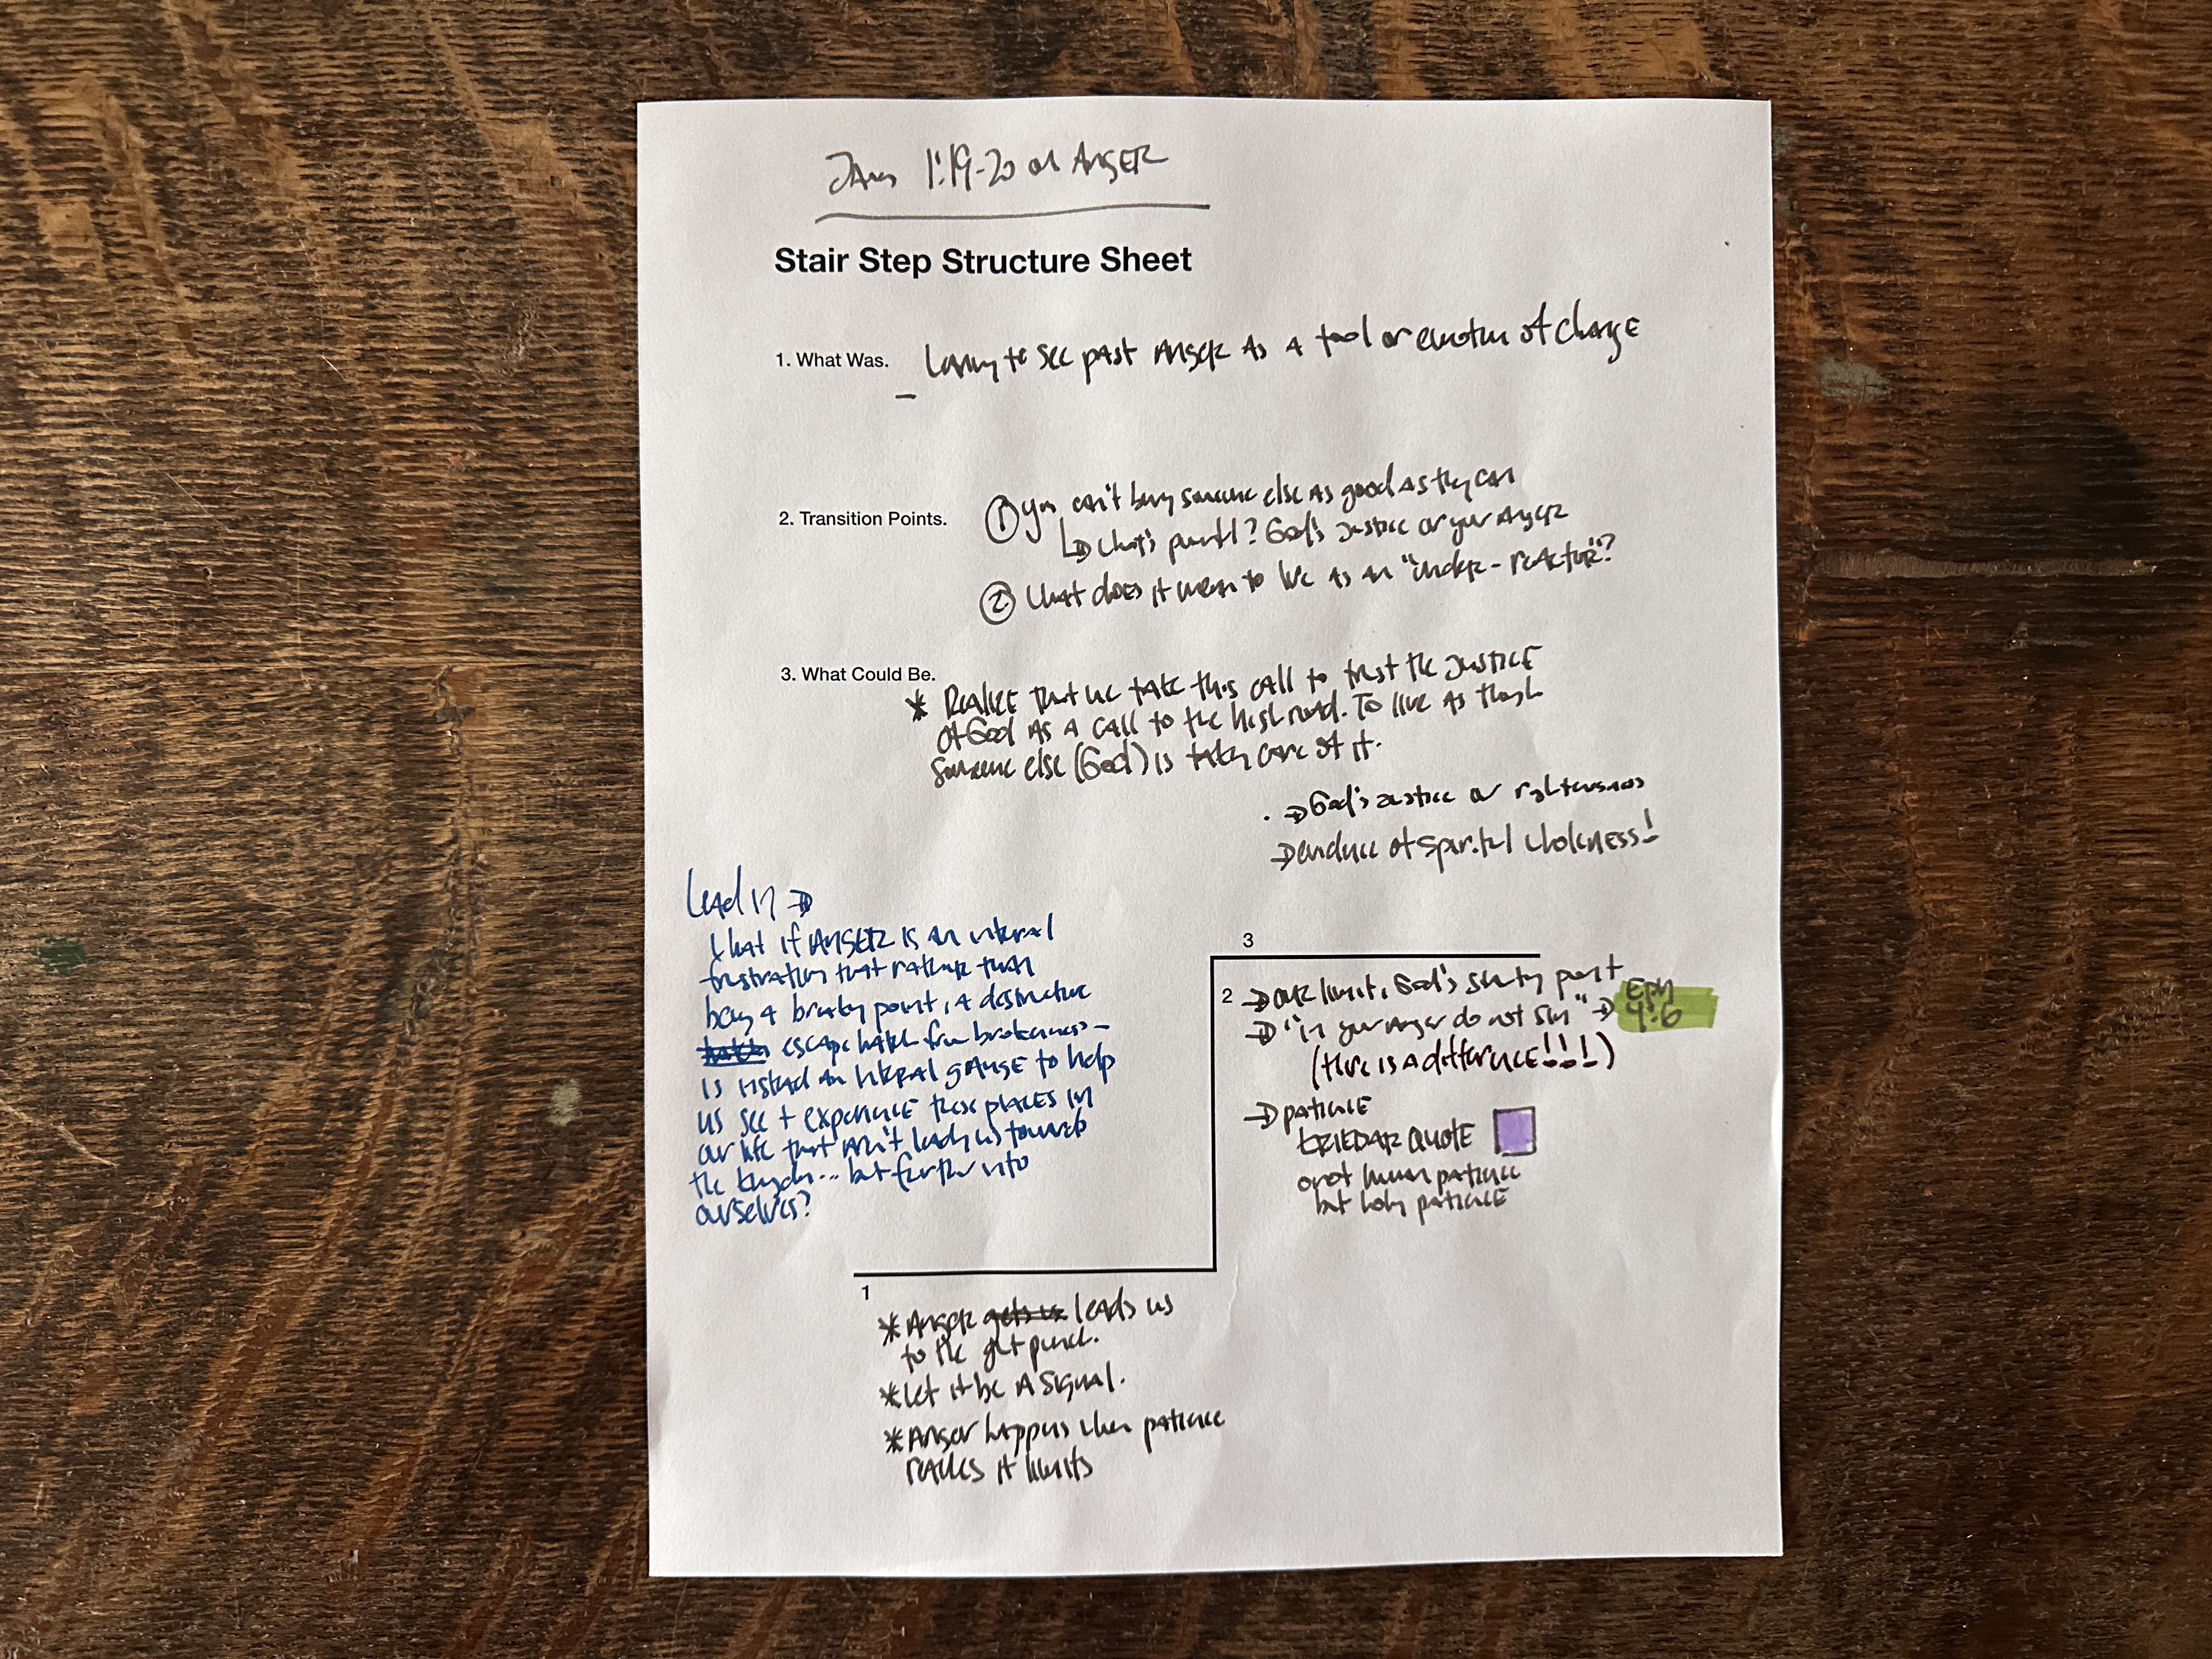 James 1:19-20 on ANGER
Stair Step Structure Sheet
1. What Was.
- to see past ANGER AS A tool or emotion of change
2. Transition Points.
① you can't bury someone else as good as they can
↳ What's ? God's Justice or your Anger
② What does it mean to live as an "under-reactor"?
3. What Could Be.
* Realize that we take this call to trust the Justice
of God as a call to the high road. To live as though
someone else (God) is taking care of it.
→ God's Justice or righteousness
→ of spiritual wholeness!
Lead in →
What if ANGER is an internal
frustration that rather than
being a breaking point, a destructive
escape hatch from brokenness -
is instead an internal gauge to help
us see + experience those places in
our life that aren't leading us towards
the kingdom... but further into
ourselves?
3
2
→ our limit, God's starting point
→ "in your anger do not sin" → Eph
4:6
(there is a difference!!!)
→ patience
QUOTE
not human patience
but holy patience
1
* Anger gets us leads us
to the gut punch.
* Let it be A signal.
* Anger happens when patience
reaches it limits